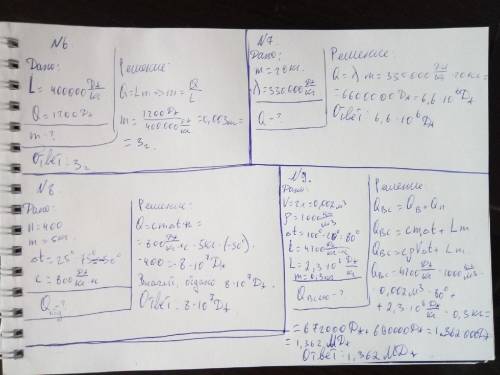 №6
Дано:
L = 400000 Дж/кг
Q = 1200 Дж
m - ?
Решение:
Q = Lm => m = Q/L
m = 1200 Дж / 400.000 Дж/кг = 0,003 кг =
= 3г.
Ответ: 3г
№7.
Дано:
m = 20 кг.
λ = 330000 Дж/кг
Q - ?
Решение:
Q = λ m = 330000 Дж/кг · 20 кг =
= 6600000 Дж = 6,6 · 10⁶ Дж
Ответ: 6,6 · 10⁶ Дж
№8
Дано:
n = 400
m = 5 кг
Δt = 25° - 75° = -50°
c = 800 Дж/кг·°c
Q - ?
Решение:
Q = cmΔt·n =
= 800 Дж/кг·°c · 5 кг · (-50°) ·
· 400 = -8 · 10⁷ Дж
8 · 10⁷ Дж.
Ответ: 8 · 10⁷ Дж
№9.
Дано:
V = 2л = 0,002 м³
ρ = 1000 кг/м³
Δt = 100° - 20° = 80°
c = 4100 Дж/кг·°c
L = 2,3 · 10⁶ Дж/кг
m = 0,3 кг
- ?
Решение
Qвс = Qв + Qп
Qвс = cmΔt + Lm
Qвс = cρVΔt + Lm
Qвс = 4100 Дж/кг·°c · 1000 кг/м³ ·
· 0,002 м³ · 80° +
+ 2,3 · 10⁶ Дж/кг · 0,3 кг =
= 672000 Дж + 690000 Дж = 1.362000 Дж
= 1,362 МДж
Ответ: 1,362 МДж